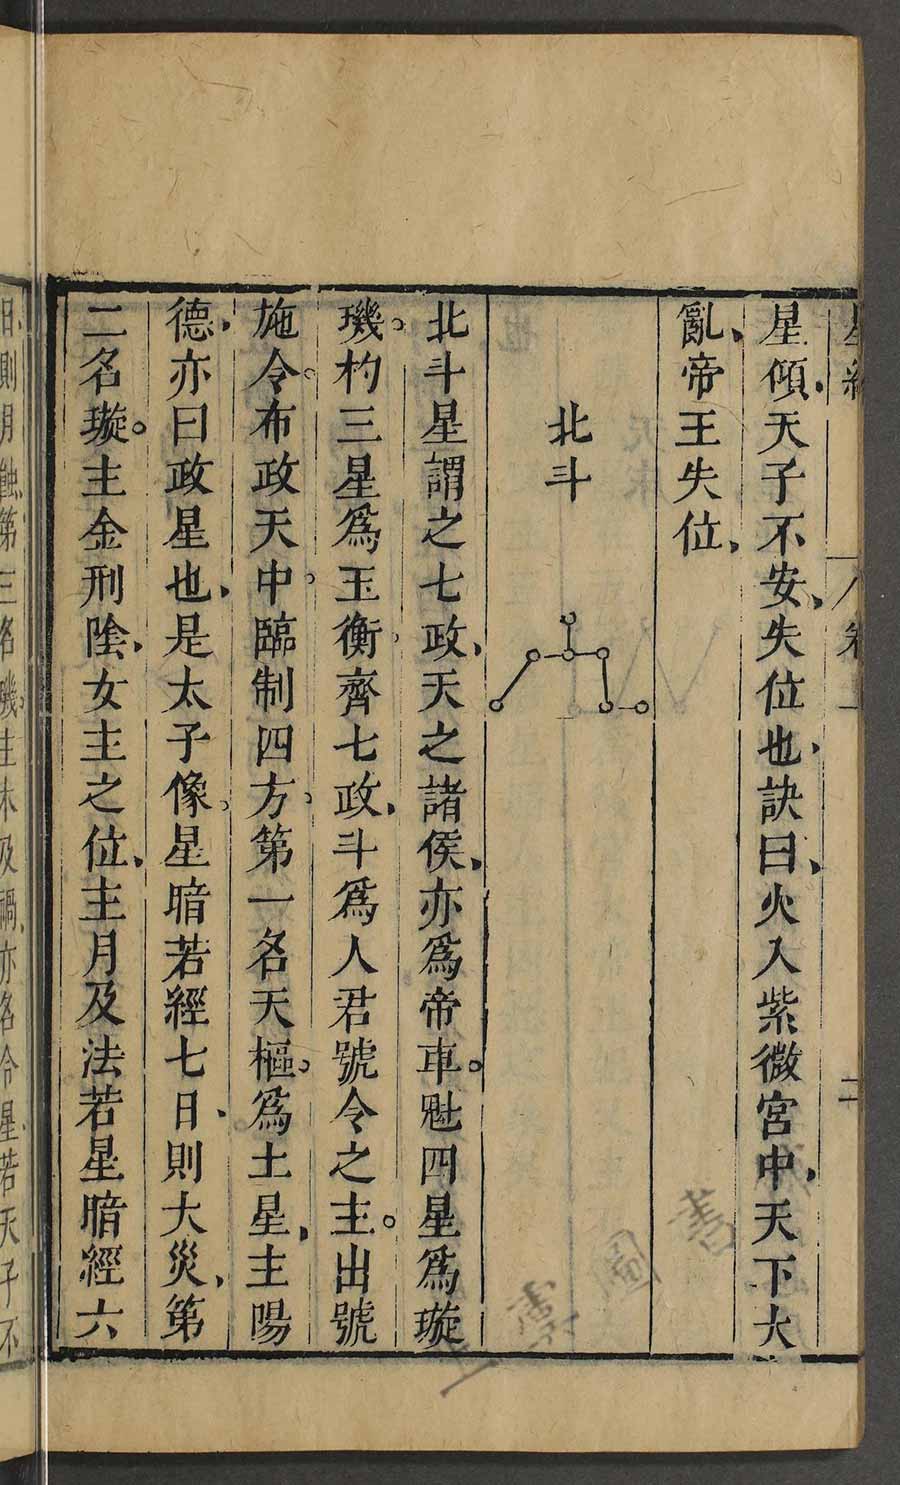 星經 卷上 二
星傾天子不安失位也訣曰火入紫微宮中天下大
亂帝王失位
北斗
北斗星謂之七政天之諸侯亦爲帝車魁四星爲璇
璣杓三星爲玉衡齊七政斗爲人君號令之主出號
施令布政天中臨制四方第一名天樞爲土星主陽
德亦曰政星也是太子像星暗若經七日則大災第
二名璇主金刑陰女主之位主月及法若星暗經六
日則月蝕第三名璣主木及禍亦名令星若天子不
圖書